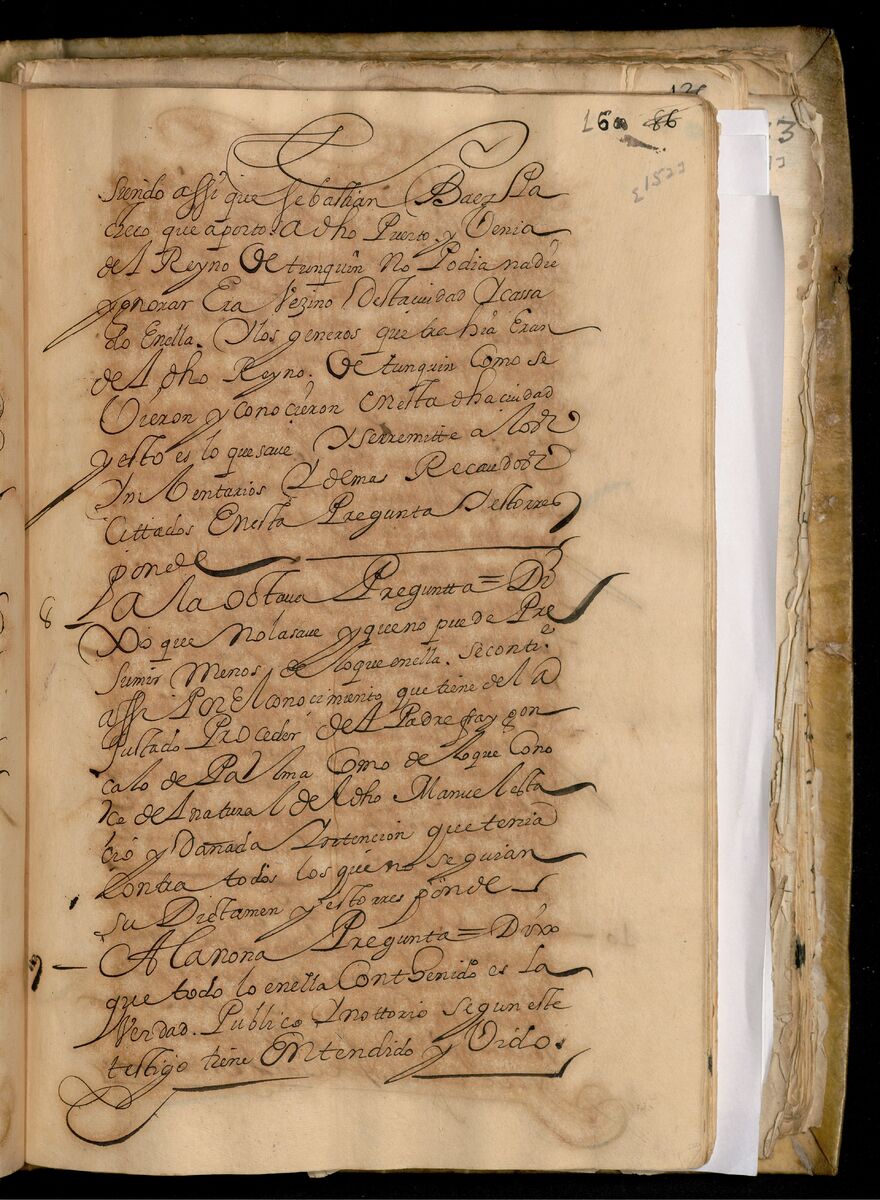 160 86
[1523
siendo assi que sebastian Baez Pa
checo que aporto a dho Puerto y Venia
del Reyno De tunquin No Podia nadie
ygnorar Era Vezino Destaciudad Y cassa
do Enella. Y los generos que trahia Eran
del dho Reyno. De tunquin Como se
Vieron y conocieron enesta dhaciudad
y esto es lo quesave Y serremitte a los
Ynbentarios Y demas Recaudos
Cittados Enesta Pregunta Y estorres
ponde
8 A la Octava Preguntta = Di
xo que Nolasave y queno puede Pre
sumir Menos de loque enella se conti.e
assi Por El conocimiento que tiene del a
justado Proceder del Padre fray gon
calo de Palma Como de loque Cono
ce del natural del dho Manuel esta
cio y Dañada Yntencion que tenia
Contra todos los que no seguian
su Dictamen y estorresponde
9 A la nona Pregunta = Dixo
que todo lo enella Conthenido es la
Verdad. Publico Ynottorio segun este
testigo tiene Entendido y Oido.